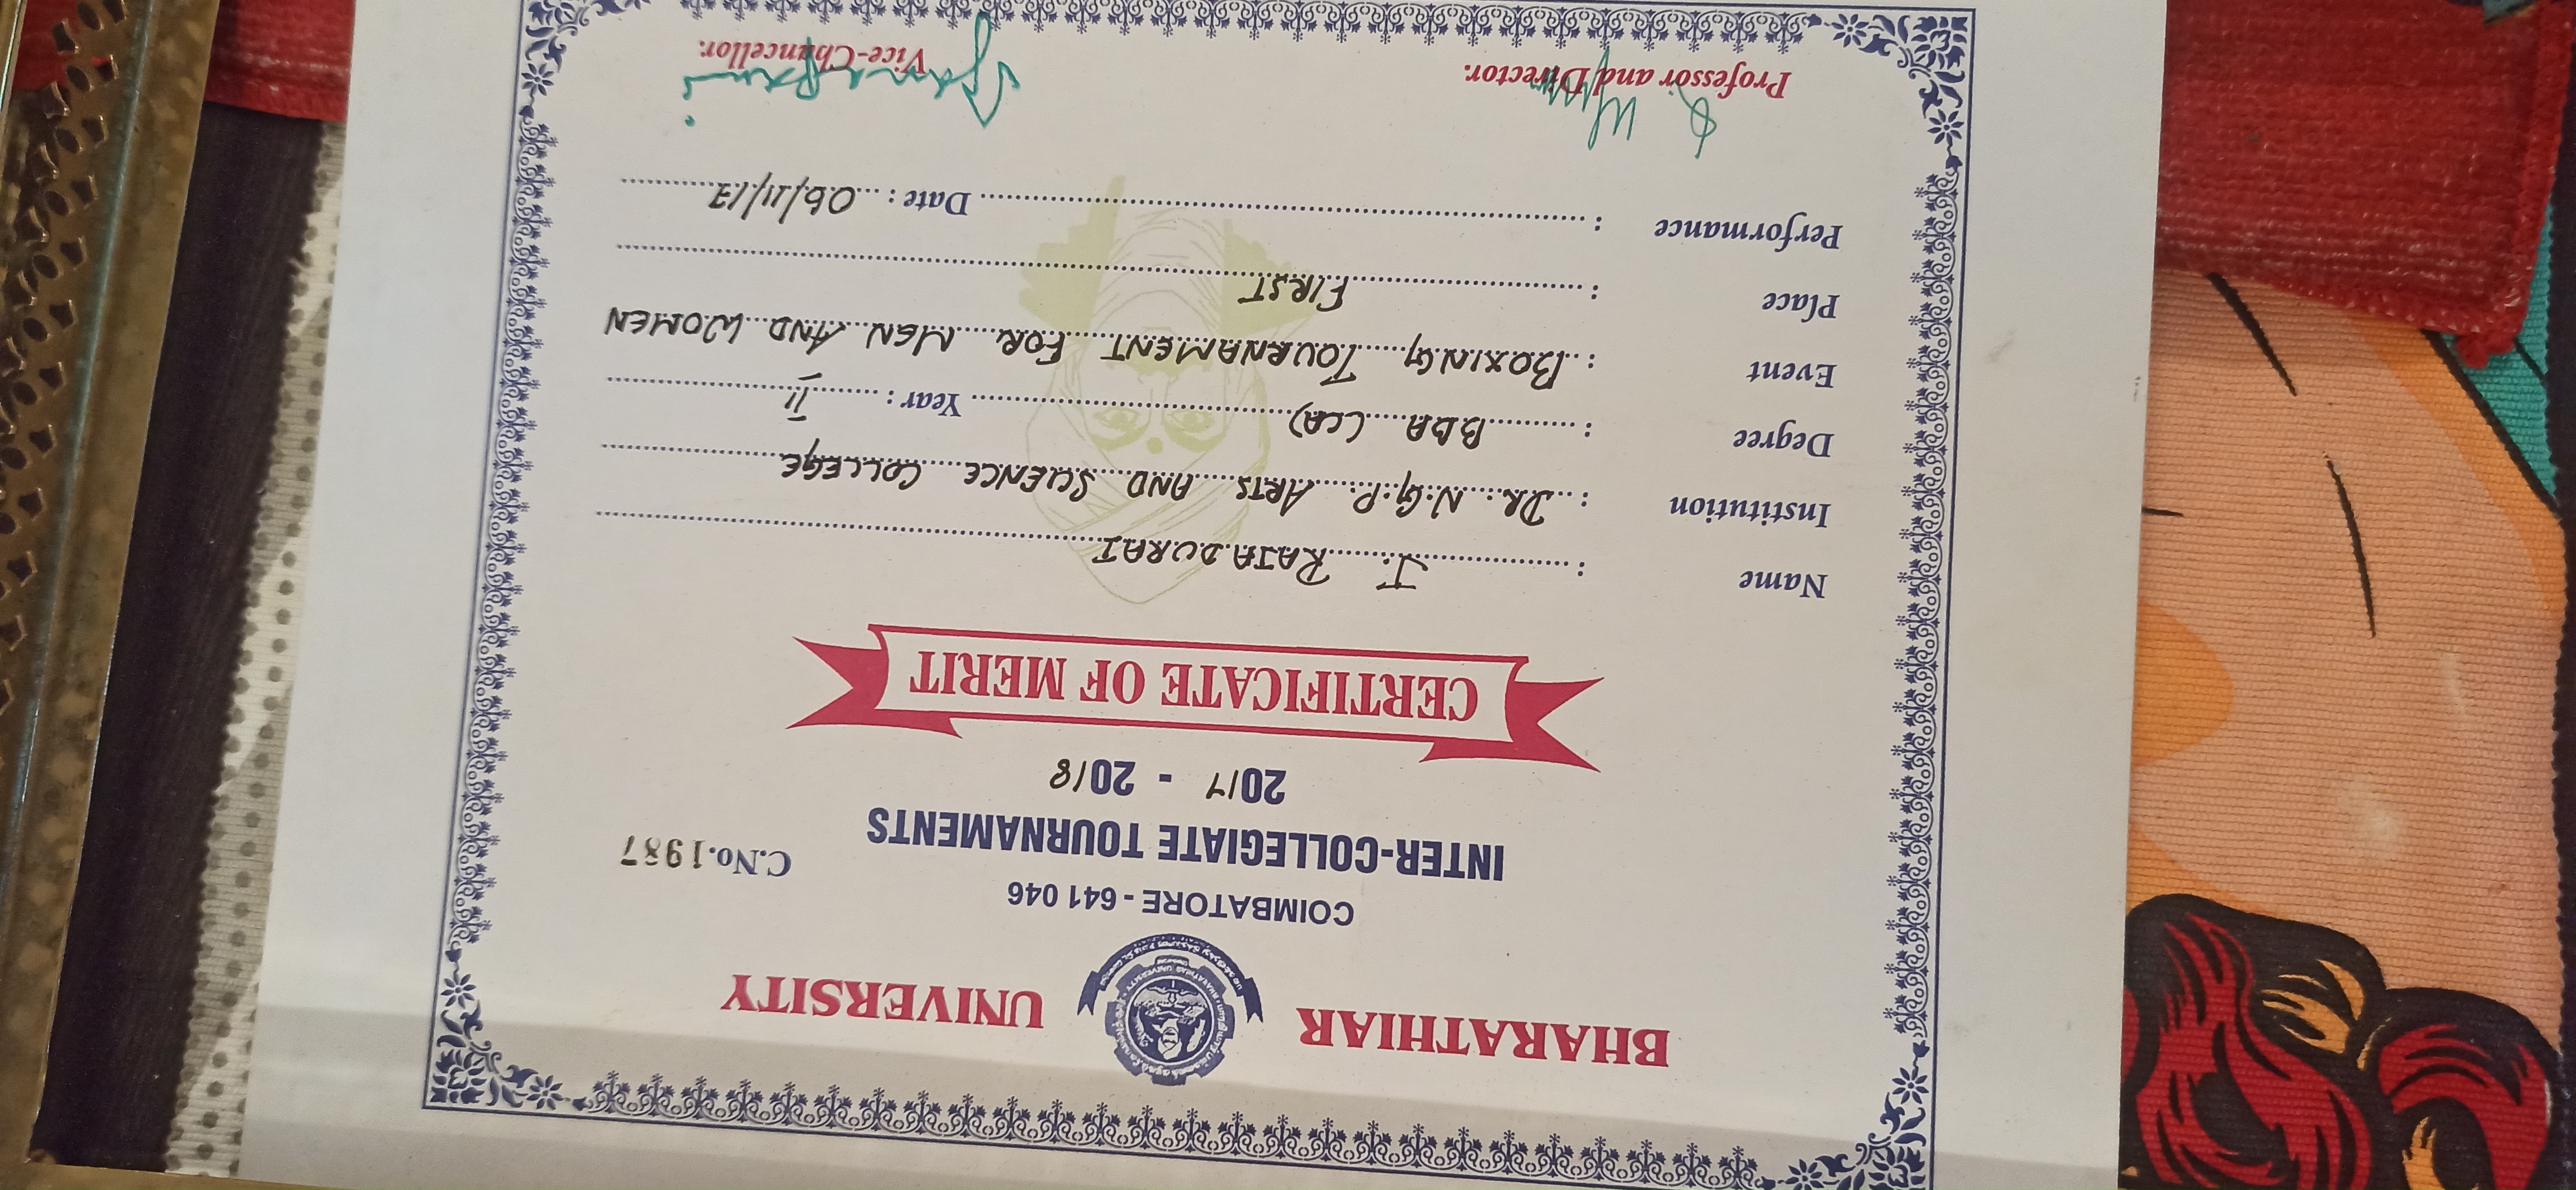 BHARATHIAR UNIVERSITY
COIMBATORE - 641 046
C.No.1987
INTER-COLLEGIATE TOURNAMENTS
2017 - 2018
CERTIFICATE OF MERIT
Name : J. RAJADURAI
Institution : DR. N.G.P. ARTS AND SCIENCE COLLEGE
Degree : BBA (CA) Year : II
Event : BOXING TOURNAMENT FOR MEN AND WOMEN
Place : FIRST
Performance : Date : 06/11/17
Professor and Director.
Vice-Chancellor.